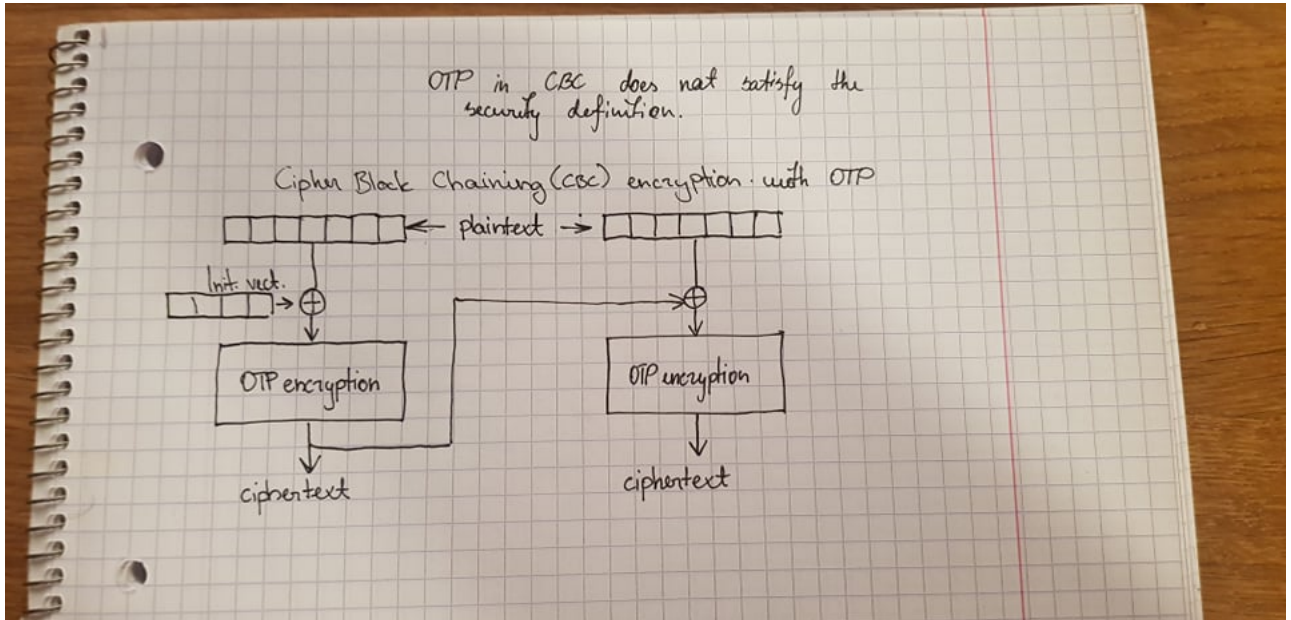 OTP in CBC does not satisfy the
security definition.
Cipher Block Chaining (CBC) encryption with OTP
plaintext
Init. vect.
OTP encryption
OTP encryption
ciphertext
ciphertext